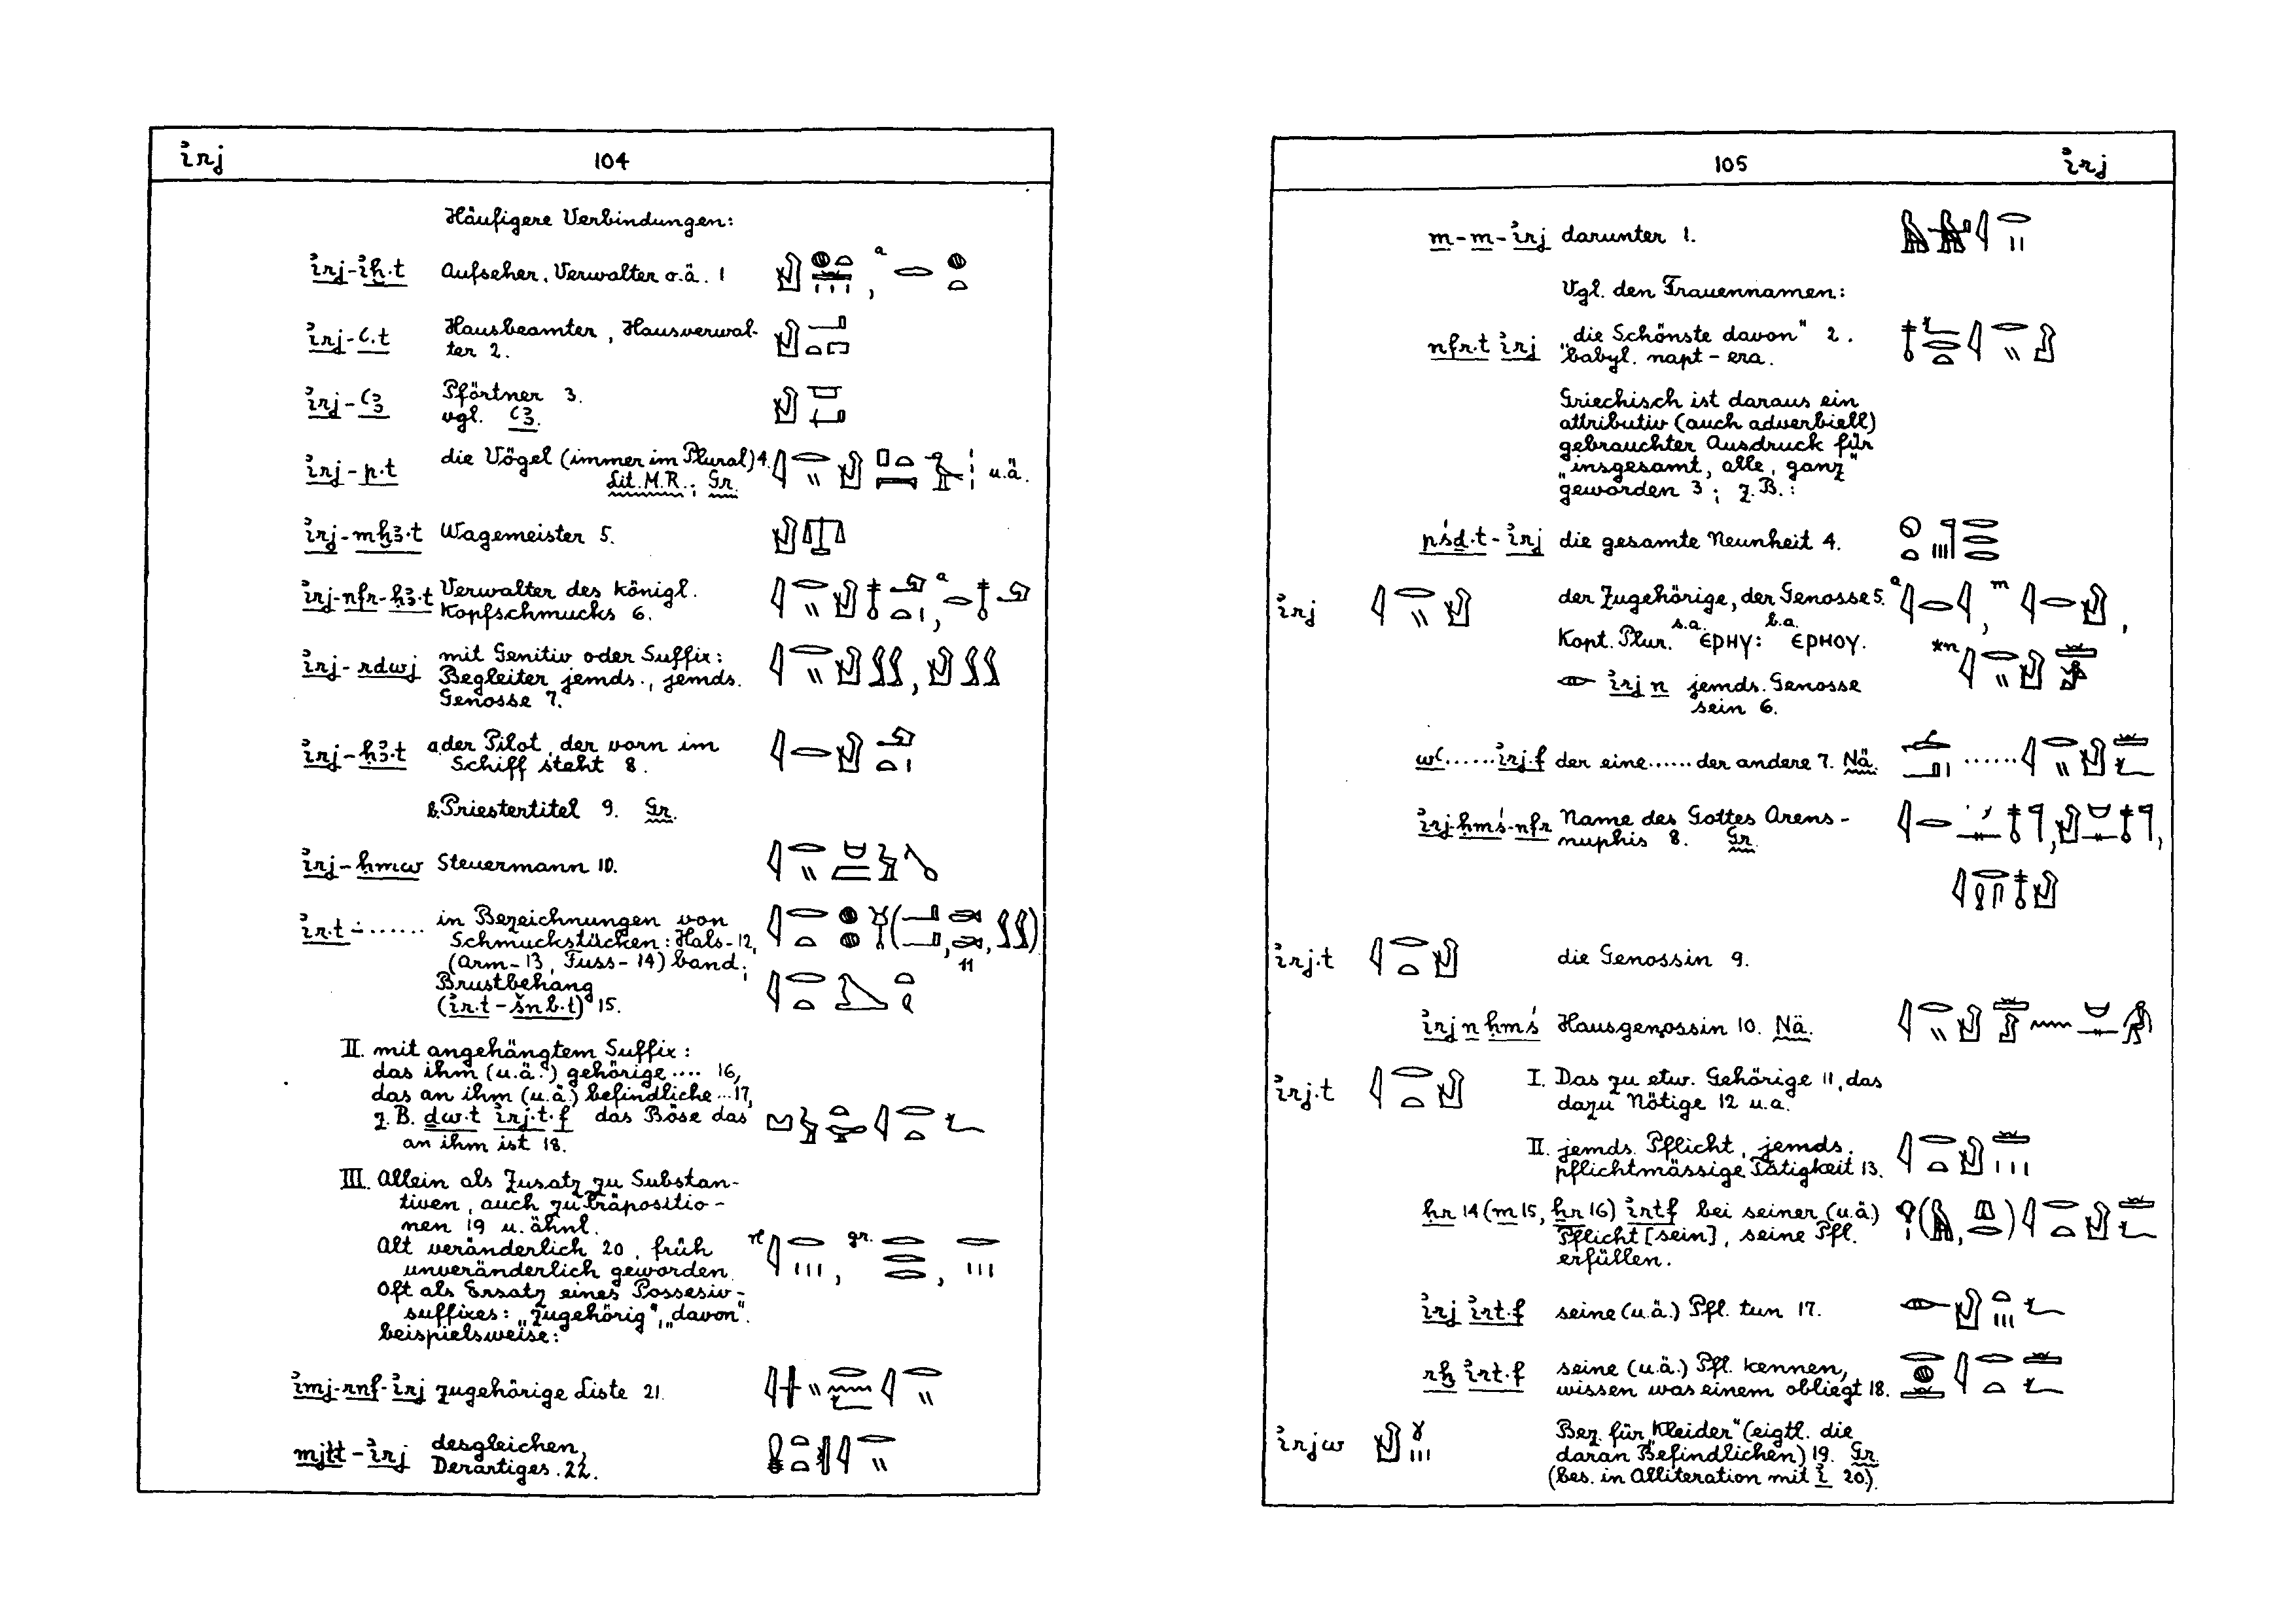 ỉrj 104
Häufigere Verbindungen:
ỉrj-ỉḫ.t Aufseher, Verwalter o.ä. 1
ỉrj-ꜥ.t Hausbeamter, Hausverwal-
ter 2.
ỉrj-ꜥꜣ Pförtner 3.
vgl. ꜥꜣ.
ỉrj-p.t die Vögel (immer im Plural) 4. u.ä.
Lit. M.R.; Gr.
ỉrj-mḫꜣ.t Wagemeister 5.
ỉrj-nfr-ḥꜣ.t Verwalter des königl.
Kopfschmucks 6.
ỉrj-rdwj mit Genitiv oder Suffix:
Begleiter jemds., jemds.
Genosse 7.
ỉrj-ḥꜣ.t a. der Pilot, der vorn im
Schiff steht 8.
b. Priestertitel 9. Gr.
ỉrj-ḥmw Steuermann 10.
ỉr.t-...... in Bezeichnungen von
Schmuckstücken: Hals-12,
(Arm-13, Fuss-14) band; 11
Brustbehang
(ỉr.t-šnb.t) 15.
II. mit angehängtem Suffix:
das ihm (u.ä.) gehörige .... 16,
das an ihm (u.ä.) befindliche ... 17,
z.B. ḏw.t ỉrj.t.f das Böse das
an ihm ist 18.
III. Allein als Zusatz zu Substan-
tiven, auch zu Präpositio-
nen 19 u. ähnl.
Alt veränderlich 20, früh
unveränderlich geworden.
Oft als Ersatz eines Possesiv-
suffixes: „zugehörig“, „davon“.
beispielsweise:
ỉmj-rnf-ỉrj zugehörige Liste 21.
mjtt-ỉrj desgleichen,
Derartiges. 22.
105 ỉrj
m-m-ỉrj darunter 1.
Vgl. den Frauennamen:
nfr.t ỉrj „die Schönste davon“ 2.
babyl. napt-era.
Griechisch ist daraus ein
attributiv (auch adverbiell)
gebrauchter Ausdruck für
„insgesamt, alle, ganz“
geworden 3; z.B.:
psḏ.t-ỉrj die gesamte Neunheit 4.
ỉrj der Zugehörige, der Genosse 5.
Kopt. Plur. s.a. ⲉⲣⲏⲩ: b.a. ⲉⲣⲏⲟⲩ.
ỉrj n jemds. Genosse
sein 6.
wꜥ......ỉrj.f der eine...... der andere 7. Nä.
ỉrj-ḥmś-nfr Name des Gottes Arens-
nuphis 8. Gr.
ỉrj.t die Genossin 9.
ỉrj n ḥmś Hausgenossin 10. Nä.
ỉrj.t I. Das zu etw. Gehörige 11, das
dazu Nötige 12 u.a.
II. jemds. Pflicht, jemds.
pflichtmässige Tätigkeit 13.
ḥr 14 (m 15, ẖr 16) ỉrtf bei seiner (u.ä.)
Pflicht [sein], seine Pfl.
erfüllen.
ỉrj ỉrt.f seine (u.ä.) Pfl. tun 17.
rḫ ỉrt.f seine (u.ä.) Pfl. kennen,
wissen was einem obliegt 18.
ỉrjw Bez. für „Kleider“ (eigtl. die
daran Befindlichen) 19. Gr.
(bes. in Alliteration mit ỉ 20.)